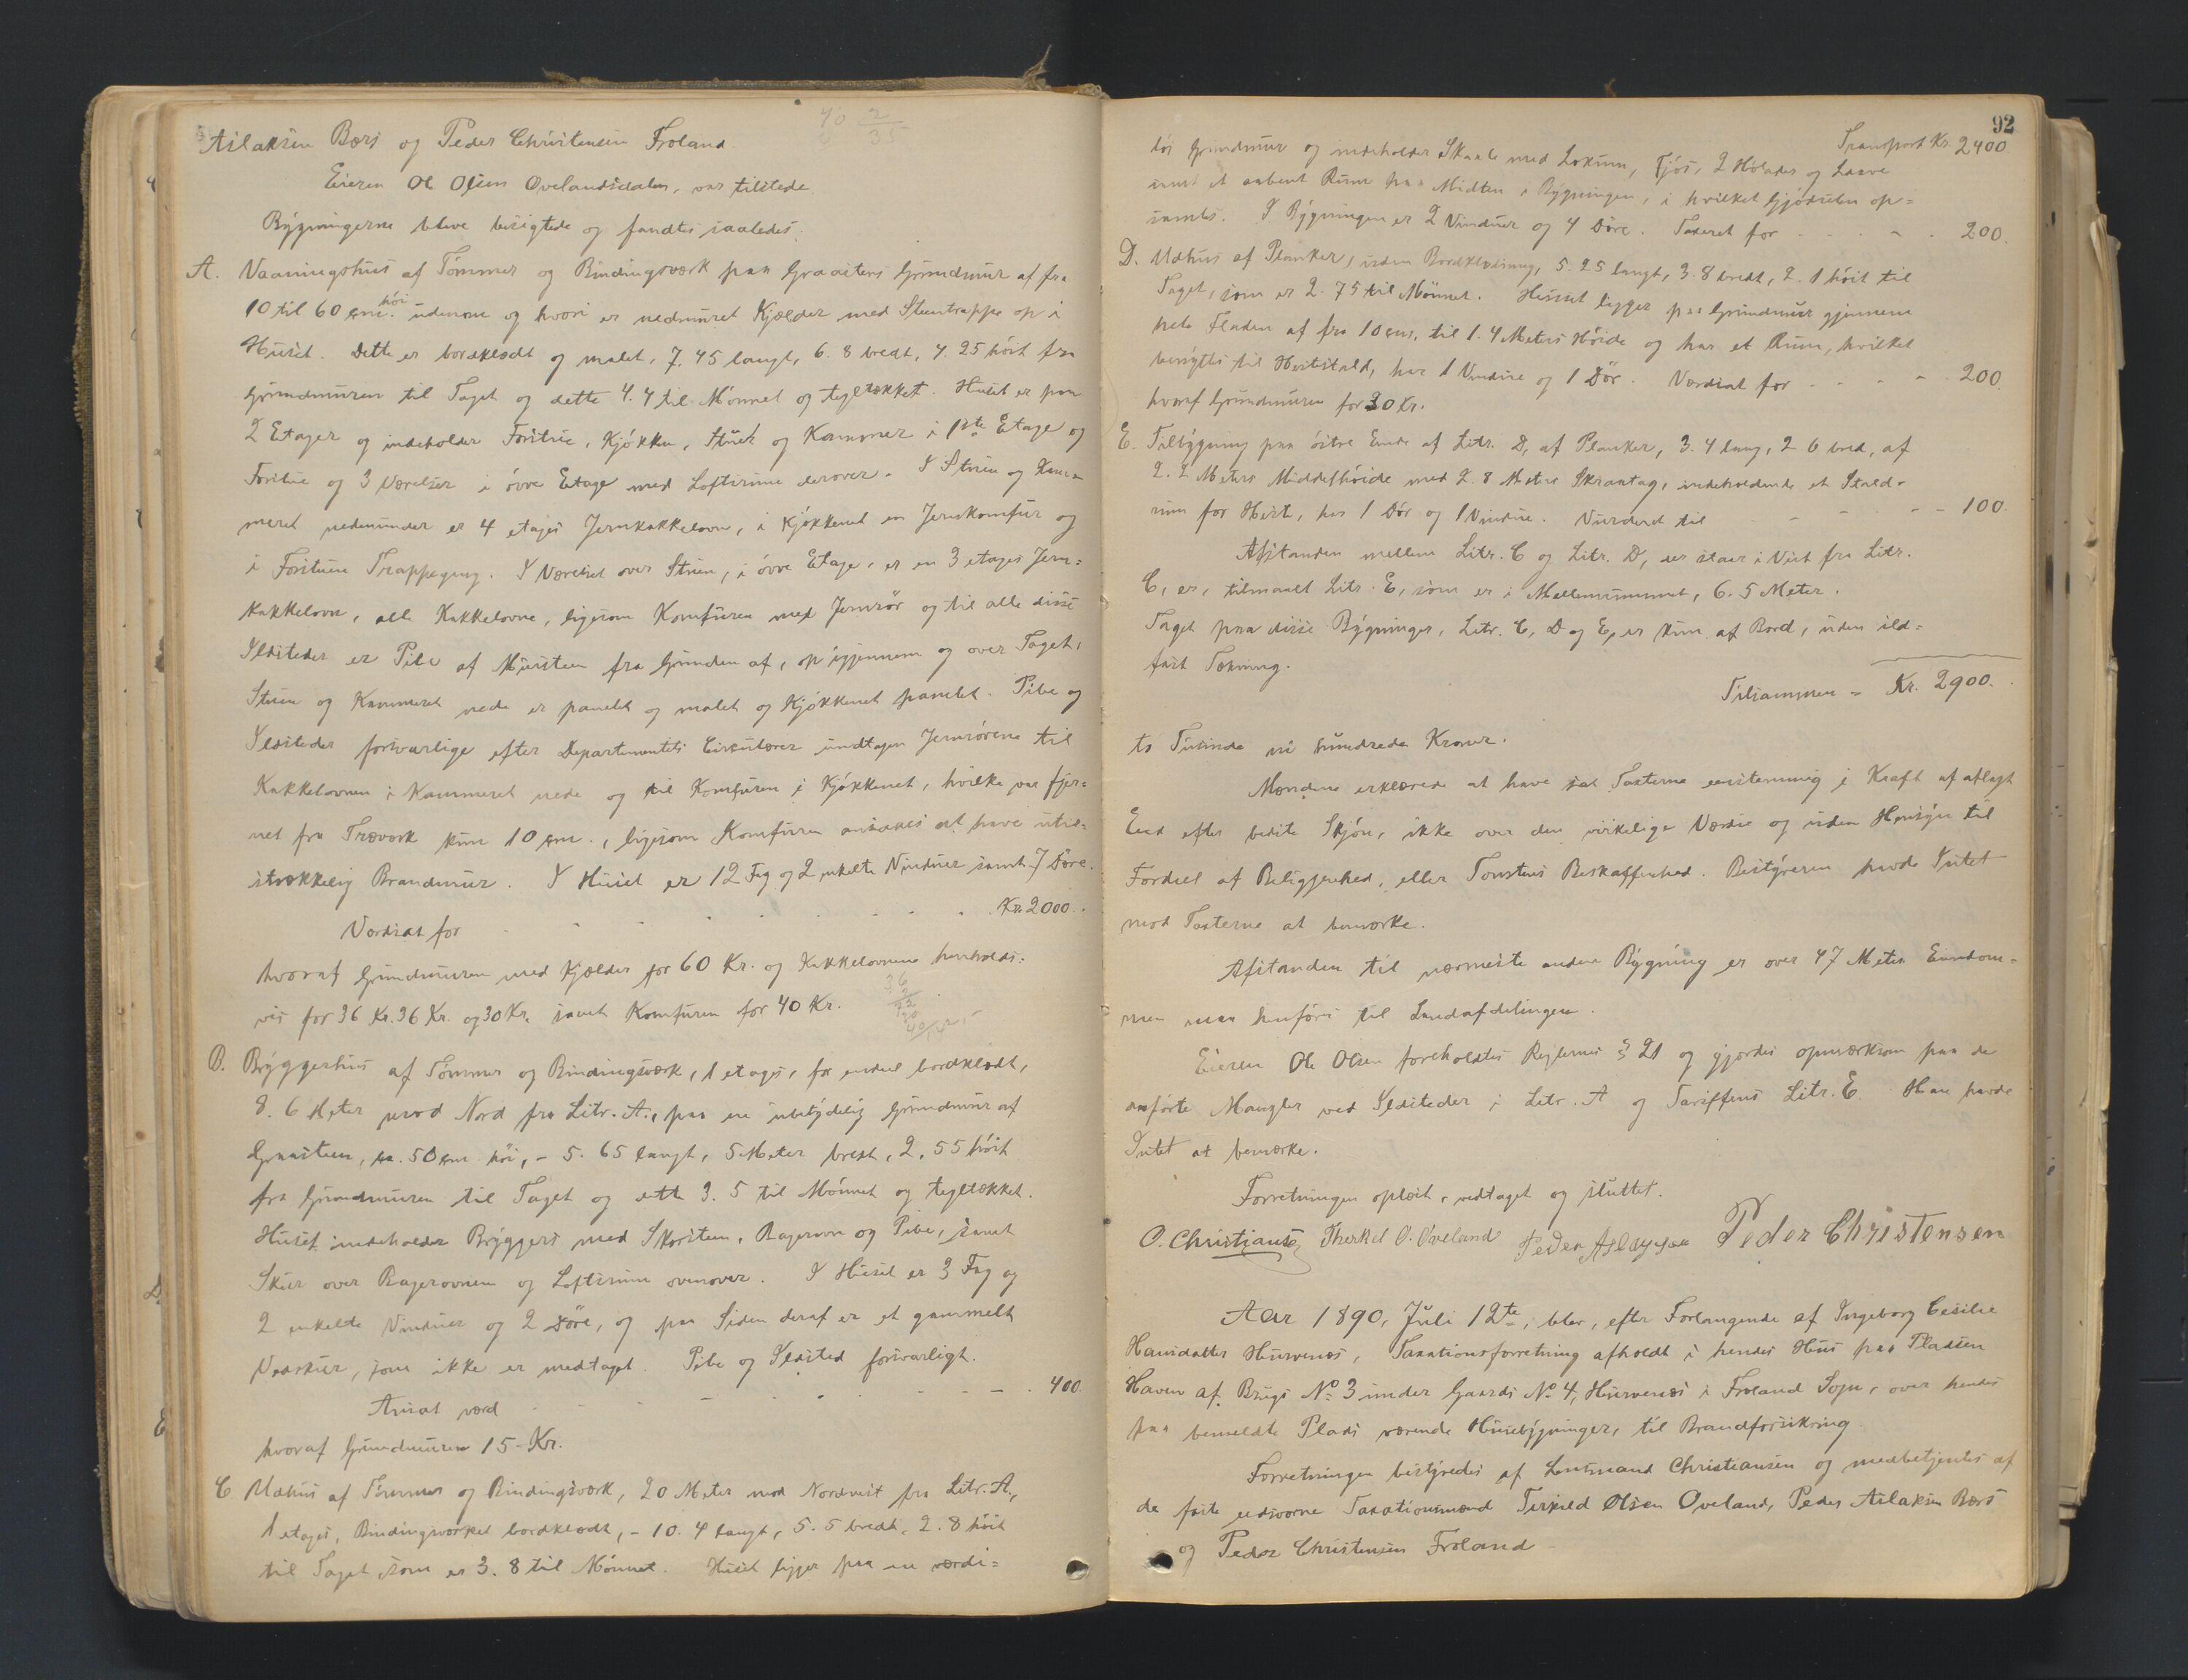 Aslaksen Bærs og Peder Christensen Froland.
Eieren Ole Olsen Ovelandsdalen, var tilstede.
Bygningerne bleve besigtede og fandtes saaledes:
A. Vaaningshus af Tømmer og Bindingsværk paa Graastens Grundmur af fra
10 til 60 cm. høi udenom og hvori er nedmuret Kjælder med Stentrappe op i
Huset. Dette er bordklædt og malet, 7.45 langt, 6.8 bredt, 4.25 høit fra
Grundmuren til Taget og dette 4.4 til Mønnet og tegltækket. Huset er paa
2 Etager og indeholder Forstue, Kjøkken, Stue og Kammer i 1ste Etage og
Forstue og 3 Værelser i øvre Etage med Loftsrum derover. I Stuen og Kam-
meret nedenunder er 4 etages Jernkakkelovne, i Kjøkkenet en Jernkomfur og
i Forstuen Trappegang. I Værelset over Stuen, i øvre Etage, er en 3 etages Jern=
kakkelovn, alle Kakkelovne, ligesom Komfuren med Jernrør og til alle disse
Ildsteder er Pibe af Mursten fra Grunden af, op igjennem og over Taget,
Stuen og Kammeret nede er panelet og malet og Kjøkkenet panelet. Pibe og
Ildsteder forsvarlige efter Departementets Circulærer undtagen Jernrørene til
Kakkelovnen i Kammeret nede og til Komfuren i Kjøkkenet, hvilke var fjer=
net fra Træværk kun 10 cm., ligesom Komfuren ansaaes at have util=
strækkelig Brandmur. I Huset er 12 Fag og 2 enkelte Vinduer samt 7 Døre.
Værdsat for - - - - - - Kr. 2000.
hvoraf Grundmuren med Kjælder for 60 Kr. og Kakkelovnene henholds=
vis for 36 Kr. 36 Kr. og 30 Kr. samt Komfuren for 40 Kr.
B. Bryggerhus af Tømmer og Bindingsværk, 1 etages, for endeel bordklædt,
8.6 Meter mod Nord fra Litr. A., paa en ubetydelig Grundmur af
Graasten, ca. 50 cm høi, - 5.65 langt, 5 Meter bredt, 2.55 høit
fra Grundmuren til Taget og dette 3.5 til Mønnet og tegltækket.
Huset indeholder Bryggers med Skorsten, Bagerovn og Pibe, samt
Skur over Bagerovnen og Loftsrum ovenover. I Huset er 3 Fag og
2 enkelte Vinduer og 2 Døre, og paa Siden deraf er et gammelt
Vedskur, som ikke er medtaget. Pibe og Ildsted forsvarligt.
Ansat værd - - - - - - 400.
hvoraf Grundmuren 15 Kr.
C Udhus af Tømmer og Bindingsværk, 20 Meter mod Nordvest fra Litr. A.,
1 etages, Bindingsværket bordklædt, - 10.4 langt, 5.5 bredt, 2.8 høit
til Taget som er 3.8 til Mønnet. Huset ligger paa en værdi=
92
Transport Kr 2400
løs Grundmur og indeholder Skaale med Lokum, Fjøs, 2 Hølader og Laave
samt et aabent Rum paa Midten i Bygningen, i hvilket Gjødselen op=
samles. I Bygningen er 2 Vinduer og 4 Døre. Taxeret for - - - 200.
D. Udhus af Planker, uden Bordklædning, 5.25 langt, 3.8 bredt, 2.1 høit til
Taget, som er 2.75 til Mønnet. Huset ligger paa Grundmur gjennem
hele Fladen af fra 10 cm. til 1.4 Meters Høide og har et Rum, hvilket
benyttes til Hestestald, har 1 Vindue og 1 Dør. Værdsat for - - - 200.
hvoraf Grundmuren for 30 Kr.
E. Tilbygning paa østre Ende af Litr. D, af Planker, 3.4 lang, 2.6 bred, af
2.2 Meters Middelhøide med 2.8 Meters Skraatag, indeholdende et Stald-
rum for Hest, har 1 Dør og 1 Vindue. Vurderet til - - - 100.
Afstanden mellem Litr. C og Litr. D, der staar i Vest fra Litr.
C, er, tilmaalt Litr. E, som er i Mellemrummet, 6.5 Meter.
Taget paa disse Bygninger, Litr. C, D og E, er kun af Bord, uden ild=
fast Tækning.
Tilsammen - Kr. 2900.
to Tusinde ni hundrede Kroner.
Mændene erklærede at have sat Taxterne eenstemmig i Kraft af aflagt
Eed efter bedste Skjøn, ikke over den virkelige Værdie og uden Hensyn til
Fordeel af Beliggenhed, eller Tomtens Beskaffenhed. Bestyreren havde Intet
mod Taxterne at bemærke.
Afstanden til nærmeste anden Bygning er over 47 Meter. Eiendom-
men maa henføres til Landafdelingen.
Eieren Ole Olsen foreholdtes Reglernes § 21 og gjordes opmærksom paa de
anførte Mangler ved Ildsteder i Litr. A og Tariffens Litr. E. Han havde
Intet at bemærke.
Forretningen oplæst, vedtaget og sluttet.
O. Christiansen Therkel O. Øveland Peder Aslaksen Peder Christensen
Aar 1890, Juli 12te, blev, efter Forlangende af Ingeborg Cesilie
Hansdatter Hurvenæs, Taxationsforretning afholdt i hendes Hus paa Pladsen
Haven af Brugs No 3 under Gaards No 4, Hurvenæs i Froland Sogn, over hendes
paa bemeldte Plads værende Husebygninger, til Brandforsikring.
Forretningen bestyredes af Lensmand Christiansen og medbetjentes af
de faste edsvorne Taxationsmænd Terkild Olsen Oveland, Peder Aslaksen Bærs
og Peder Christensen Froland -